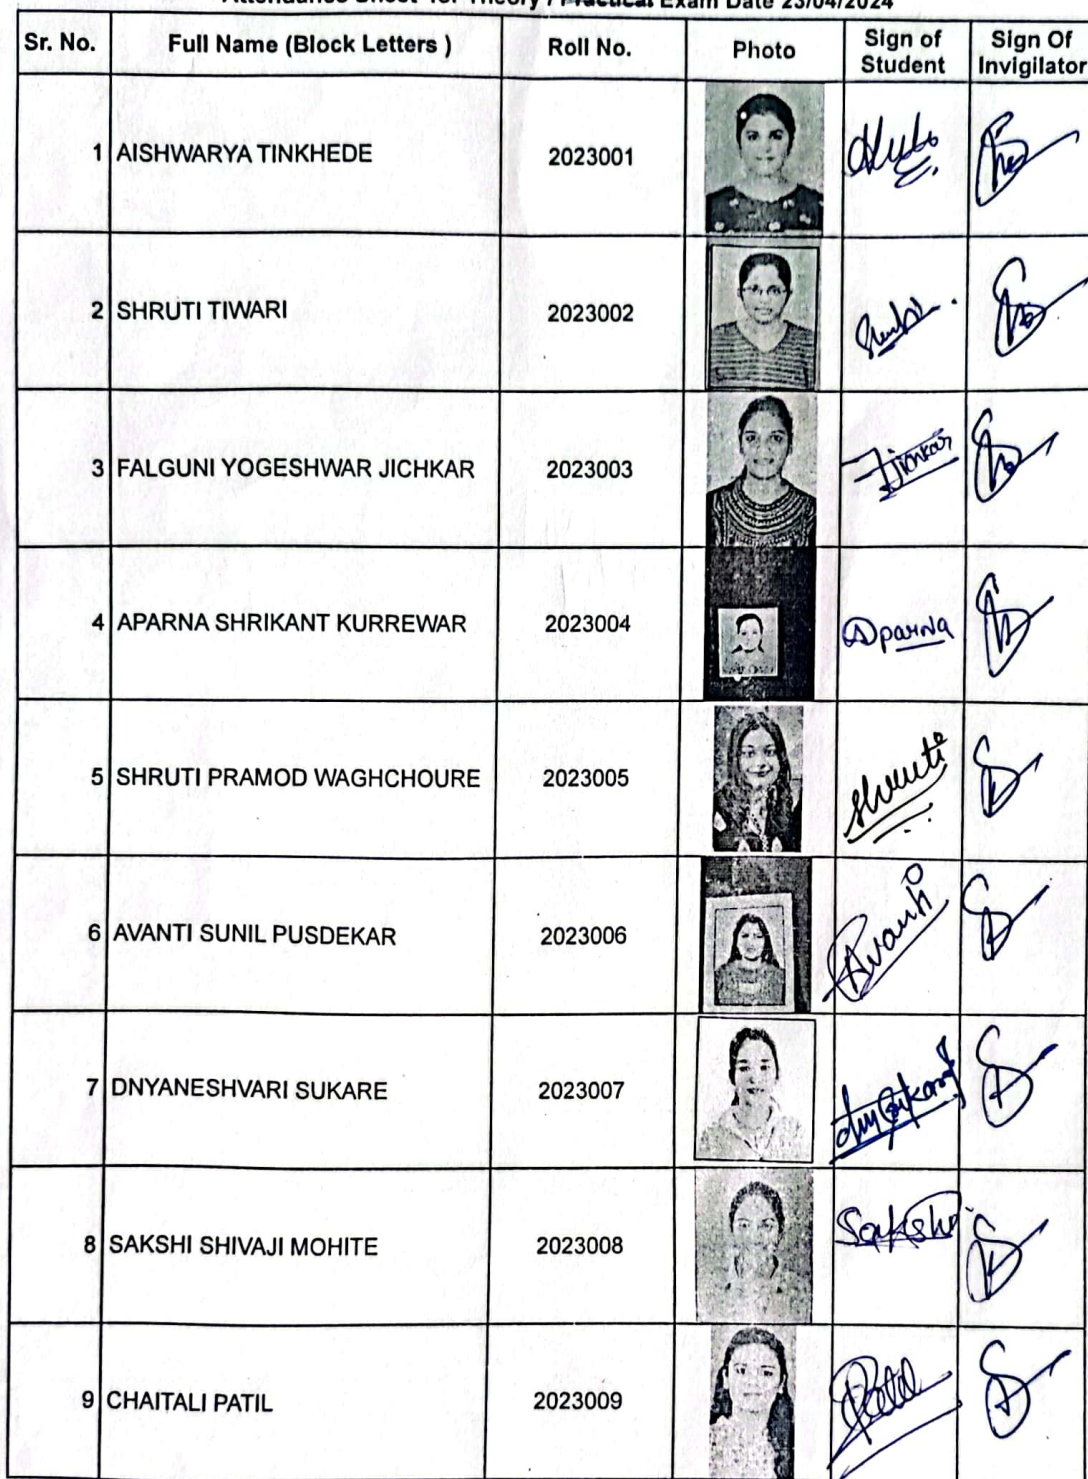 Attendance Sheet for Theory / Practical Exam Date 23/04/2024
Sr. No. Full Name (Block Letters ) Roll No. Photo Sign of Student Sign Of Invigilator
1 AISHWARYA TINKHEDE 2023001
2 SHRUTI TIWARI 2023002
3 FALGUNI YOGESHWAR JICHKAR 2023003 Fjichkar
4 APARNA SHRIKANT KURREWAR 2023004 Aparna
5 SHRUTI PRAMOD WAGHCHOURE 2023005 Shruti
6 AVANTI SUNIL PUSDEKAR 2023006 Avanti
7 DNYANESHVARI SUKARE 2023007
8 SAKSHI SHIVAJI MOHITE 2023008 Sakshi
9 CHAITALI PATIL 2023009